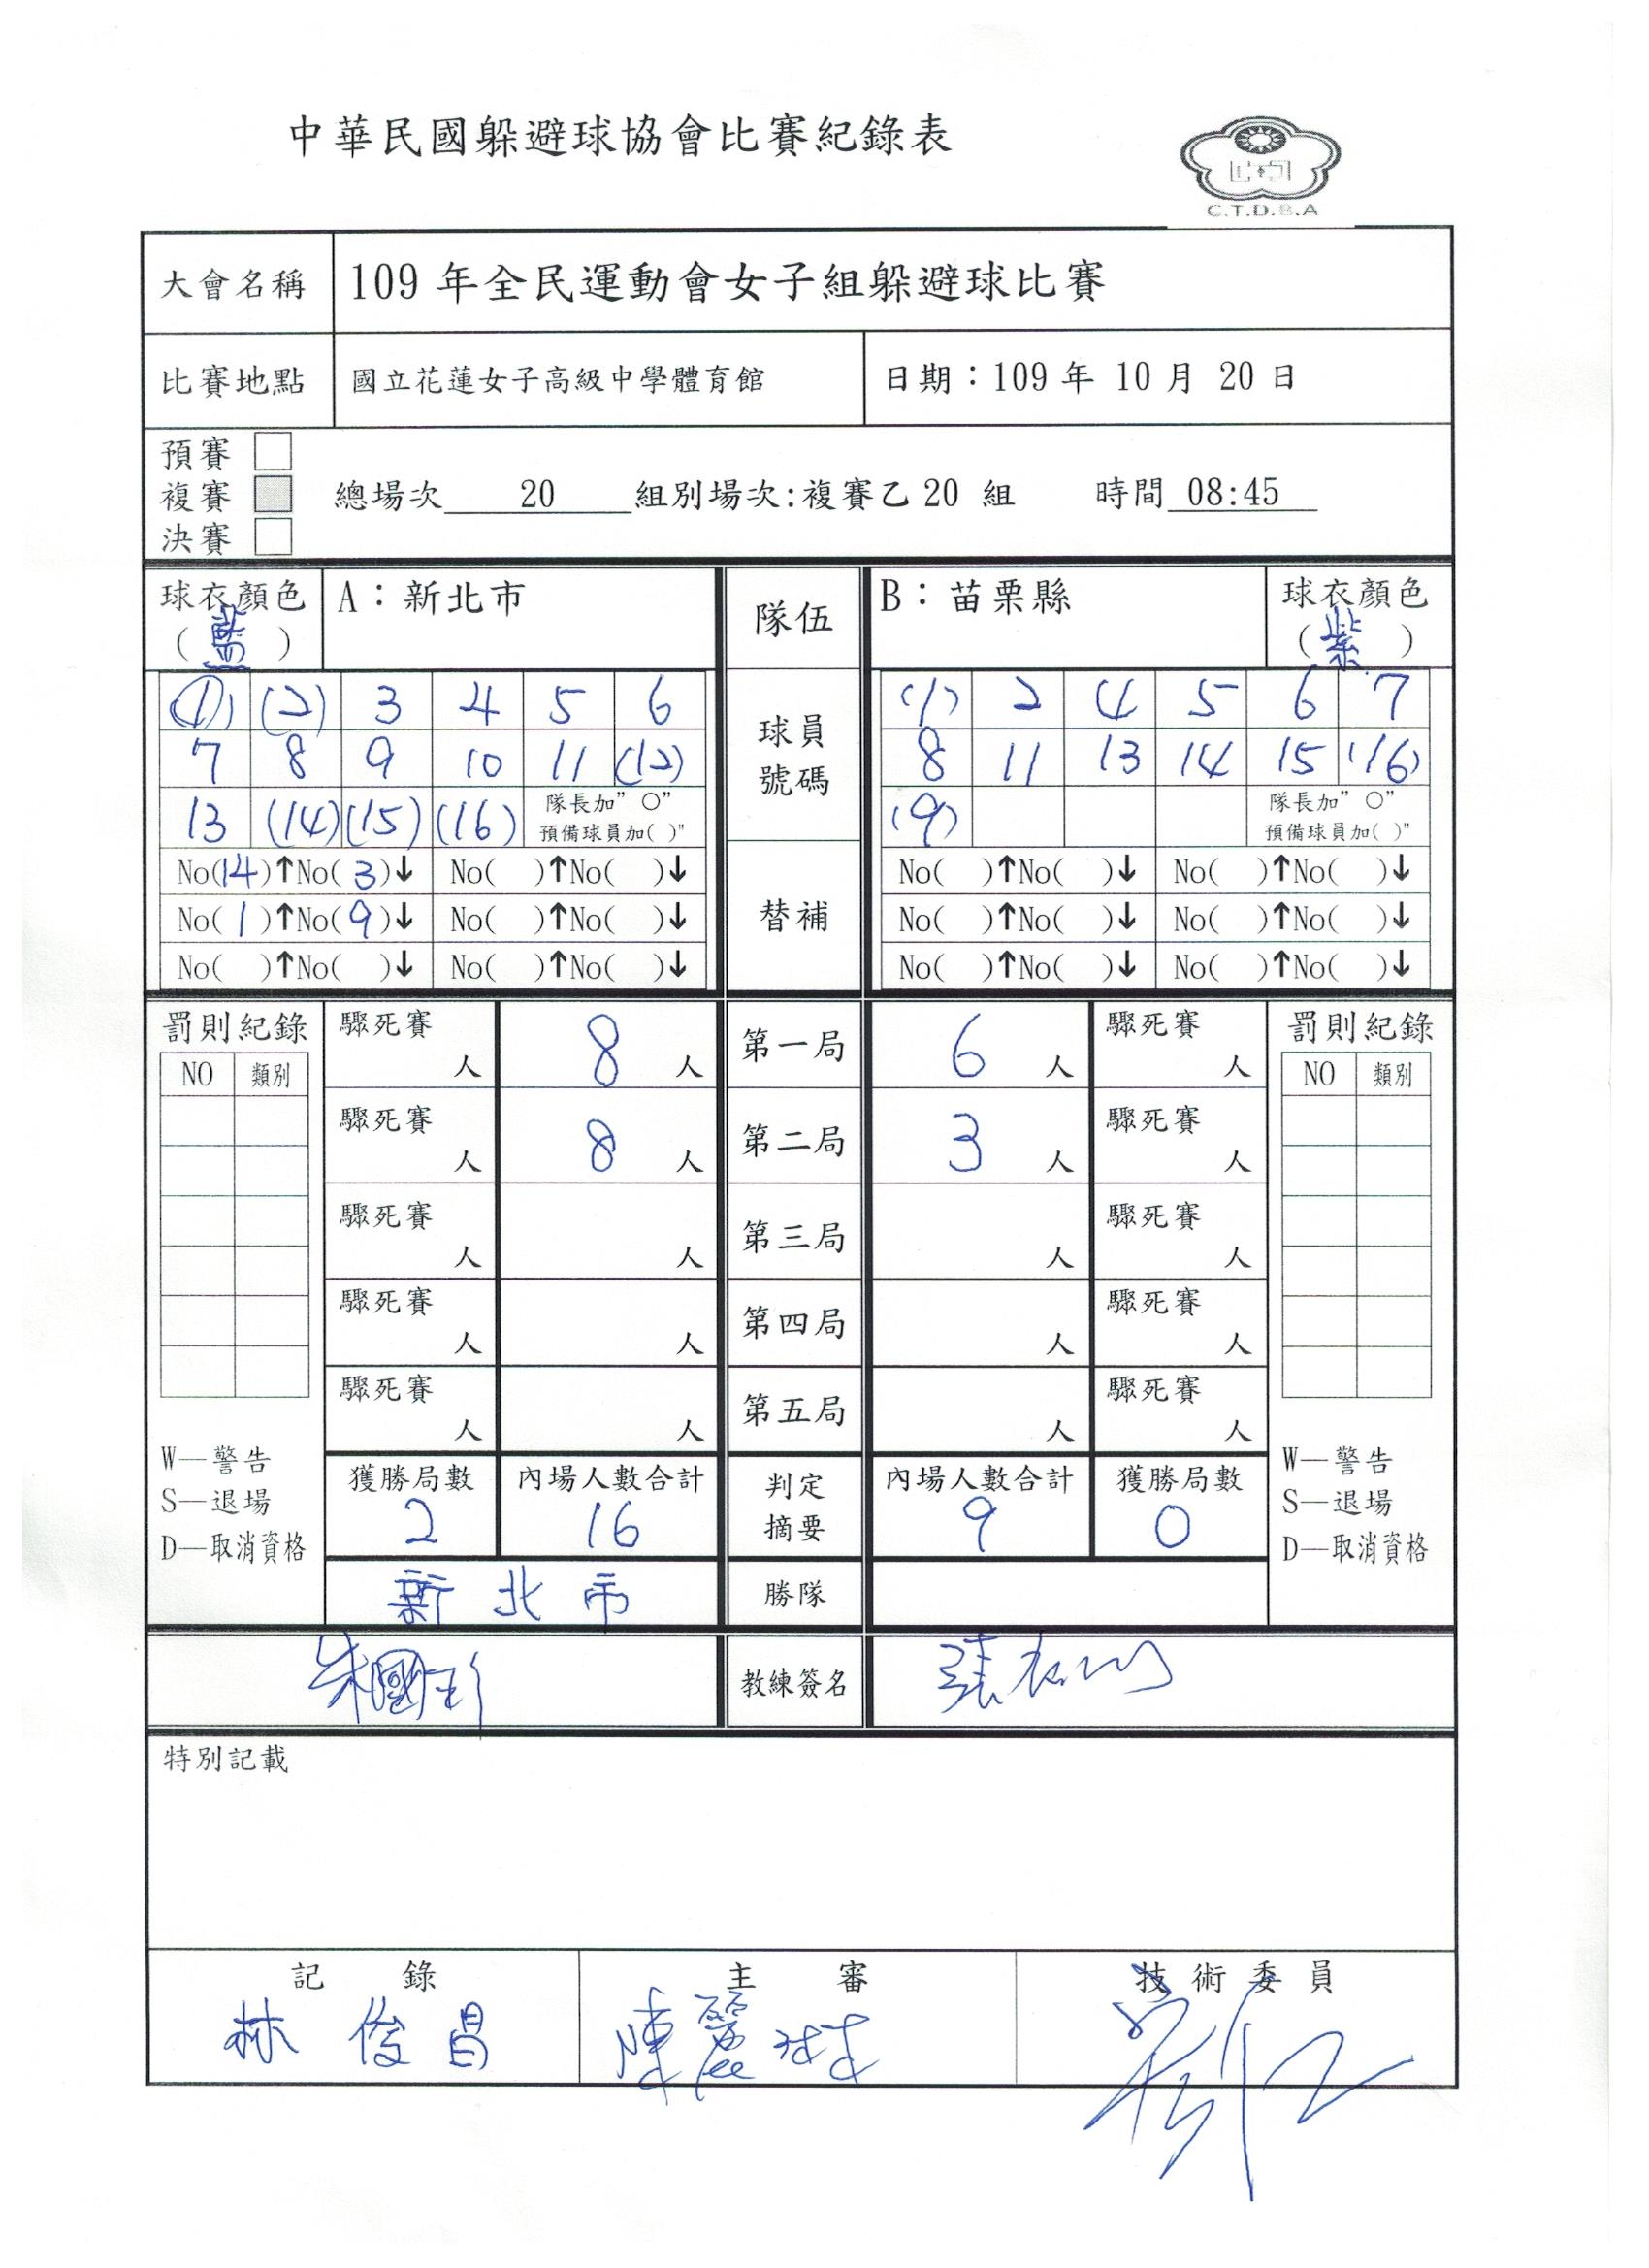 中華民國躲避球協會比賽紀錄表
C.T.D.B.A
大會名稱 109 年全民運動會女子組躲避球比賽
比賽地點 國立花蓮女子高級中學體育館 日期：109 年 10 月 20 日
預賽
複賽 總場次 20 組別場次:複賽乙 20 組 時間 08:45
決賽
球衣顏色 A：新北市 隊伍 B：苗栗縣 球衣顏色
(藍) (紫)
(1) (2) 3 4 5 6 球員 (1) 2 4 5 6 7
7 8 9 10 11 (12) 號碼 8 11 13 14 15 (16)
13 (14) (15) (16) 隊長加” ○” (9) 隊長加” ○”
預備球員加( )" 預備球員加( )"
No(14)↑No(3)↓ No( )↑No( )↓ No( )↑No( )↓ No( )↑No( )↓
No(1)↑No(9)↓ No( )↑No( )↓ 替補 No( )↑No( )↓ No( )↑No( )↓
No( )↑No( )↓ No( )↑No( )↓ No( )↑No( )↓ No( )↑No( )↓
罰則紀錄 驟死賽 人 8 人 第一局 6 人 驟死賽 人 罰則紀錄
NO 類別 NO 類別
驟死賽 人 8 人 第二局 3 人 驟死賽 人
驟死賽 人 人 第三局 人 驟死賽 人
驟死賽 人 人 第四局 人 驟死賽 人
驟死賽 人 人 第五局 人 驟死賽 人
W—警告 獲勝局數 內場人數合計 判定 內場人數合計 獲勝局數 W—警告
S—退場 2 16 摘要 9 0 S—退場
D—取消資格 D—取消資格
新北市 勝隊
朱國 教練簽名 張
特別記載
記 錄 主 審 技 術 委 員
林俊昌 陳麗